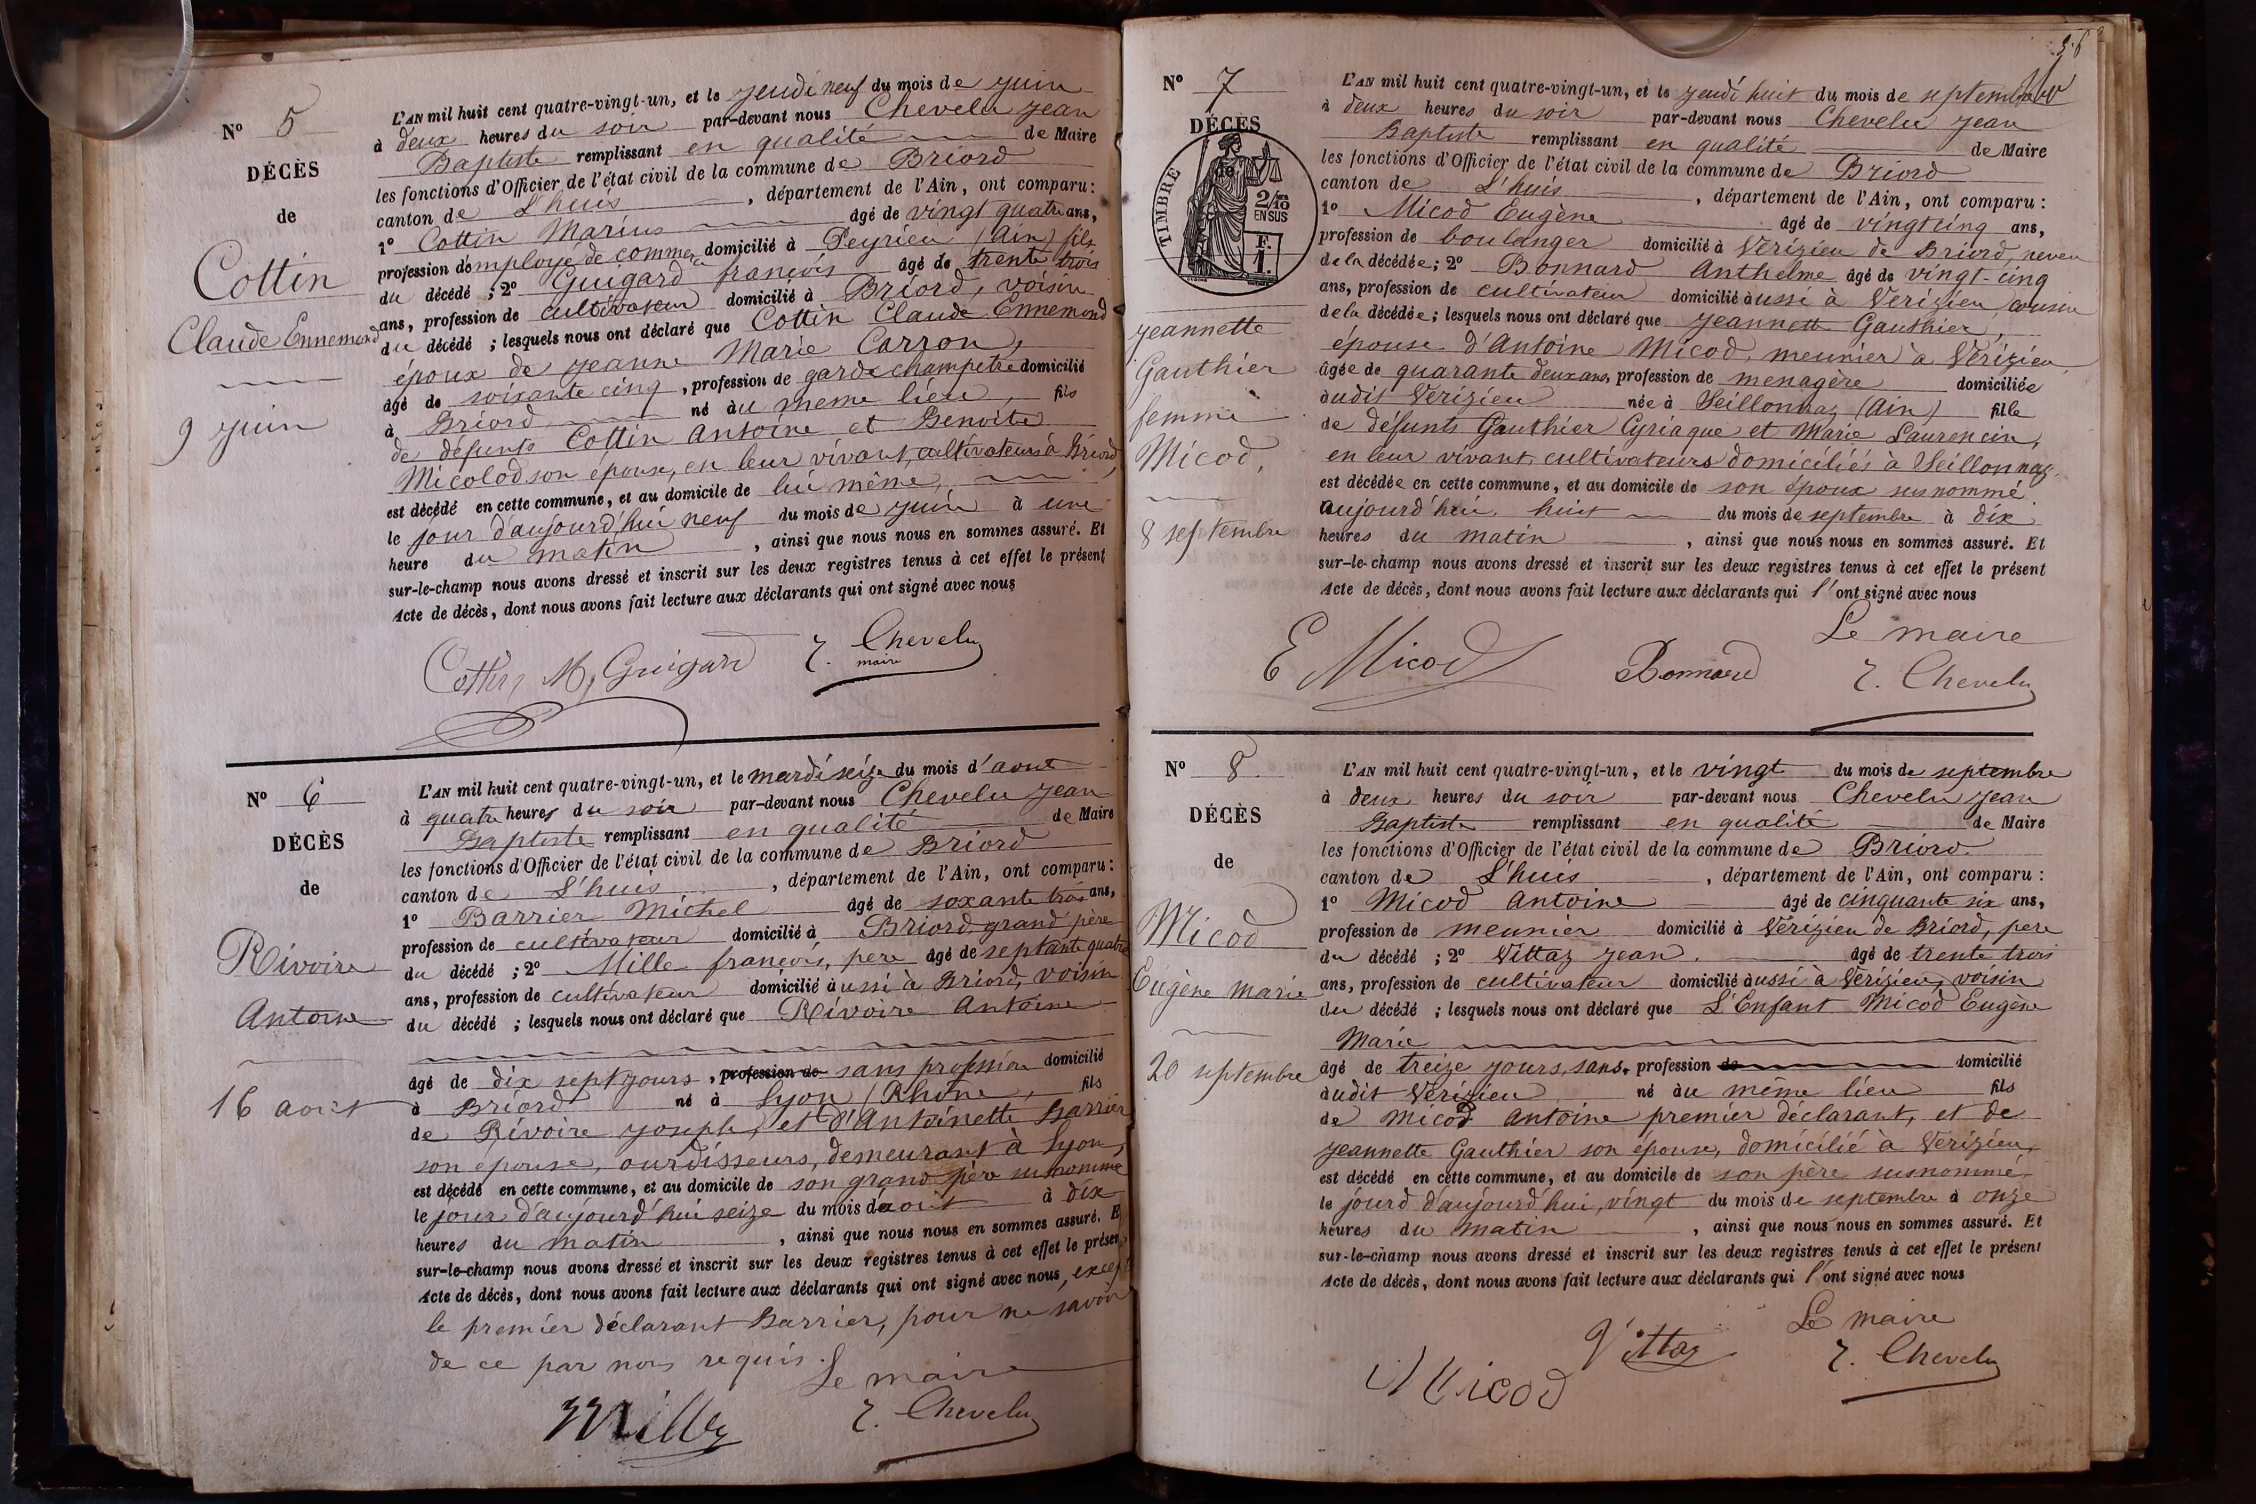 N° 5
DÉCÈS
de
Cottin
Claude Ennemond
9 juin
L'AN mil huit cent quatre-vingt-un, et le jeudi neuf du mois de juin
à deux heures du soir par-devant nous Chevelu Jean
Baptiste remplissant en qualité de Maire
les fonctions d'Officier de l'état civil de la commune de Briord
canton de L'huis, département de l'Ain, ont comparu :
1° Cottin Marius âgé de vingt quatre ans,
profession d'employé de commerce domicilié à Peyrieu (Ain) fils
du décédé ; 2° Guigard françois âgé de trente trois
ans, profession de cultivateur domicilié à Briord, voisin
du décédé ; lesquels nous ont déclaré que Cottin Claude Ennemond
époux de jeanne Marie Carron,
âgé de soixante cinq, profession de garde champetre domicilié
à Briord né au meme lieu, fils
de défunts Cottin Antoine et Benoite
Micolod son épouse, en leur vivant, cultivateurs à Briord,
est décédé en cette commune, et au domicile de lui même,
le jour d'aujourd'hui neuf du mois de juin à une
heure du matin, ainsi que nous nous en sommes assuré. Et
sur-le-champ nous avons dressé et inscrit sur les deux registres tenus à cet effet le présent
Acte de décès, dont nous avons fait lecture aux déclarants qui ont signé avec nous
Cottin M, Guigard J. Chevelu
maire
N° 6
DÉCÈS
de
Rivoire
Antoine
16 aout
L'AN mil huit cent quatre-vingt-un, et le mardi seize du mois d'aout
à quatre heures du soir par-devant nous Chevelu Jean
Baptiste remplissant en qualité de Maire
les fonctions d'Officier de l'état civil de la commune de Briord
canton de L'huis, département de l'Ain, ont comparu :
1° Barrier Michel âgé de soxante trois ans,
profession de cultivateur domicilié à Briord grand père
du décédé ; 2° Mille françois, pere âgé de septante quatre
ans, profession de cultivateur domicilié aussi à Briord, voisin
du décédé ; lesquels nous ont déclaré que Rivoire Antoine
âgé de dix sept jours, profession de sans profession domicilié
à Briord né à Lyon (Rhône, fils
de Rivoire joseph, et d'Antoinette Barrier
son épouse, ourdisseurs, demeurant à Lyon,
est décédé en cette commune, et au domicile de son grand père susnommé
le jour d'aujourd'hui seize du mois d'aoüt à dix
heures du matin, ainsi que nous nous en sommes assuré. E
sur-le-champ nous avons dressé et inscrit sur les deux registres tenus à cet effet le présen
Acte de décès, dont nous avons fait lecture aux déclarants qui ont signé avec nous, except
le premier déclarant Barrier, pour ne savoir
de ce par nous requis. Le maire
Mille J. Chevelu
36
N° 7
DÉCÈS
de
TIMBRE
2/10 EN SUS
F. 1.
jeannette
Gauthier
femme
Micod,
8 septembre
L'AN mil huit cent quatre-vingt-un, et le jeudi huit du mois de septembre
à deux heures du soir par-devant nous Chevelu Jean
Baptiste remplissant en qualité de Maire
les fonctions d'Officier de l'état civil de la commune de Briord
canton de L'huis, département de l'Ain, ont comparu :
1° Micod Eugène âgé de vingt cinq ans,
profession de boulanger domicilié à Vérizieu de Briord, neveu
de la décédée ; 2° Bonnard Anthelme âgé de vingt-cinq
ans, profession de cultivateur domicilié aussi à Verizieu, cousin
de la décédée ; lesquels nous ont déclaré que jeannette Gauthier,
épouse d'Antoine Micod, meunier à Vérizieu,
âgée de quarante deux ans, profession de menagère domiciliée
audit Verizieu née à Seillonnaz (Ain) fille
de défunts Gauthier Cyriaque et Marie Laurencin,
en leur vivant cultivateurs domiciliés à Seillonnaz,
est décédée en cette commune, et au domicile de son époux susnommé
aujourd'hui huit du mois de septembre à dix
heures du matin, ainsi que nous nous en sommes assuré. Et
sur-le-champ nous avons dressé et inscrit sur les deux registres tenus à cet effet le présent
Acte de décès, dont nous avons fait lecture aux déclarants qui l'ont signé avec nous
Le maire
E Micod Bonnard J. Chevelu
N° 8.
DÉCÈS
de
Micod
Eugène marie
20 septembre
L'AN mil huit cent quatre-vingt-un, et le vingt du mois de septembre
à deux heures du soir par-devant nous Chevelu Jean
Baptiste remplissant en qualité de Maire
les fonctions d'Officier de l'état civil de la commune de Briord.
canton de L'huis, département de l'Ain, ont comparu :
1° Micod Antoine âgé de cinquante six ans,
profession de meunier domicilié à Vérizieu de Briord, pere
du décédé ; 2° Vittaz jean. âgé de trente trois
ans, profession de cultivateur domicilié aussi à Vérizieu, voisin
du décédé ; lesquels nous ont déclaré que L'Enfant Micod Eugène
Marie
âgé de treize jours, sans, profession de domicilié
audit Vérizieu né au même lieu fils
de Micod Antoine premier déclarant, et de
jeannette Gauthier son épouse, domicilié à Verizieu,
est décédé en cette commune, et au domicile de son père susnommé
le jourd d'aujourd'hui, vingt du mois de septembre à onze
heures du matin, ainsi que nous nous en sommes assuré. Et
sur-le-champ nous avons dressé et inscrit sur les deux registres tenus à cet effet le présent
Acte de décès, dont nous avons fait lecture aux déclarants qui l'ont signé avec nous
Le maire
Micod Vittaz J. Chevelu